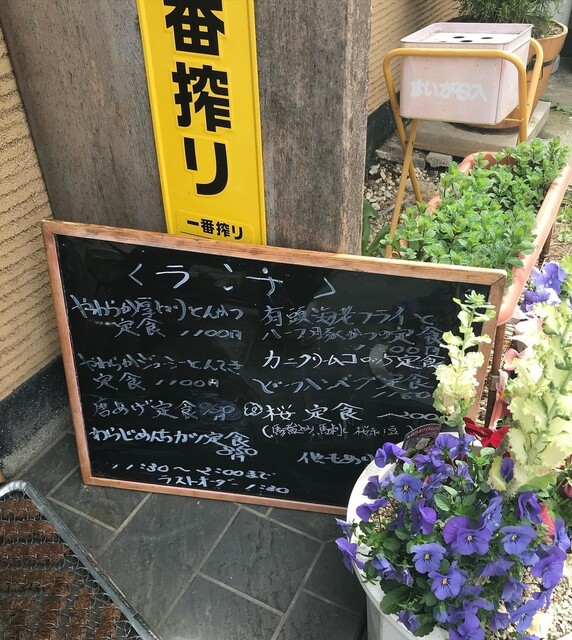 一番搾り
一番搾り
すいがら入
ランチ
やわらか厚切りとんかつ
定食 1100円
やわらかジューシーとんてき
定食 1100円
唐あげ定食
わらじめんちカツ定食
有頭海老フライと
ハーフ豚かつ定食
カニクリームコロッケ定食
ビーフハンバーグ定食
桜定食
他もあり
11:30〜2:00まで
ラストオーダー 1:30